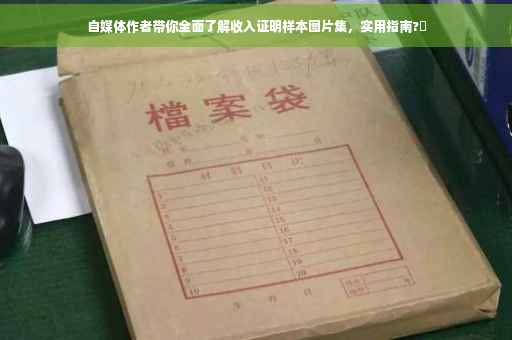 自媒体作者带你全面了解收入证明样本图片集，实用指南?
檔案袋
材料目次
1
2
3
4
5
6
7
8
9
10
11
12
13
14
15
16
17
18
19
20
年 月 日